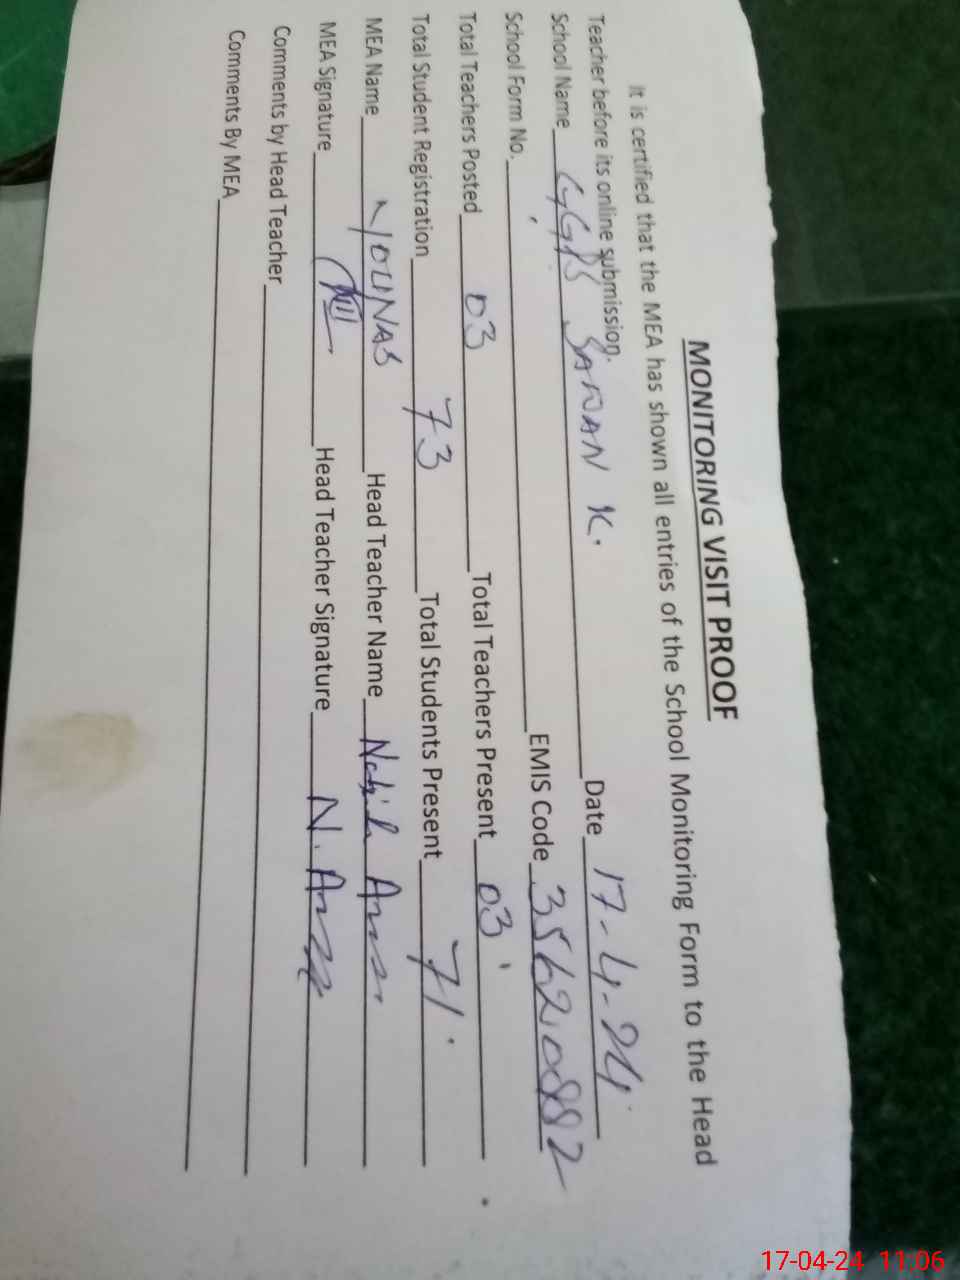 MONITORING VISIT PROOF
It is certified that the MEA has shown all entries of the School Monitoring Form to the Head
Teacher before its online submission.
School Name GGPS SAWAN K. Date 17-4-24
School Form No. EMIS Code 35420882
Total Teachers Posted 03 Total Teachers Present 03
Total Student Registration 73 Total Students Present 71.
MEA Name YOUNAS Head Teacher Name
MEA Signature Head Teacher Signature N.
Comments by Head Teacher
Comments By MEA
17-04-24 11:06